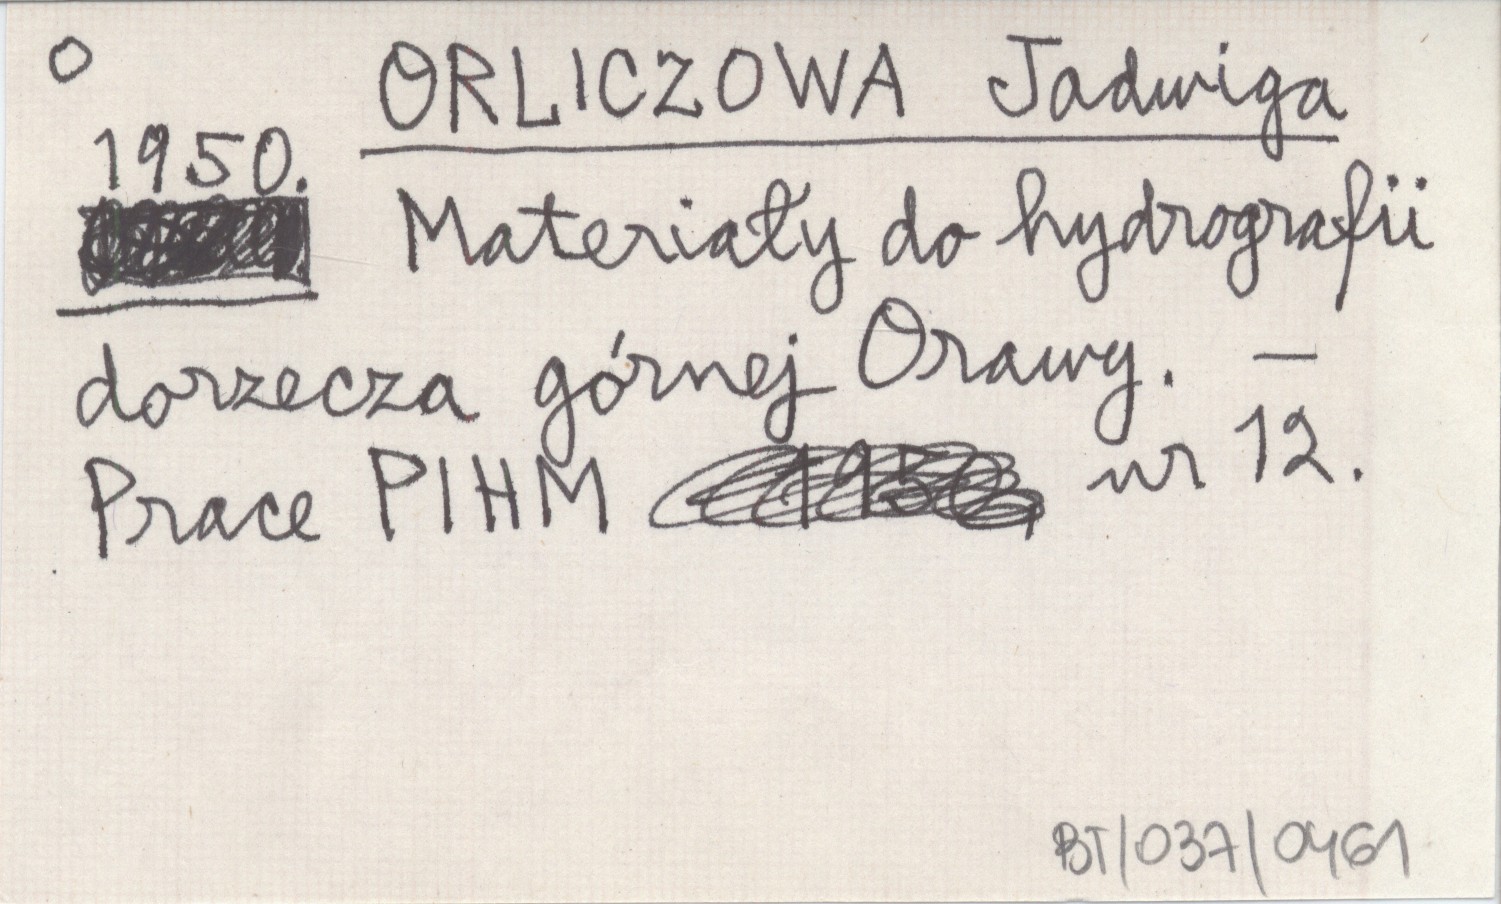 O
ORLICZOWA Jadwiga
1950.
Materiały do hydrografii
dorzecza górnej Orawy. —
Prace PIHM 1950, nr 12.
BT/037/0461